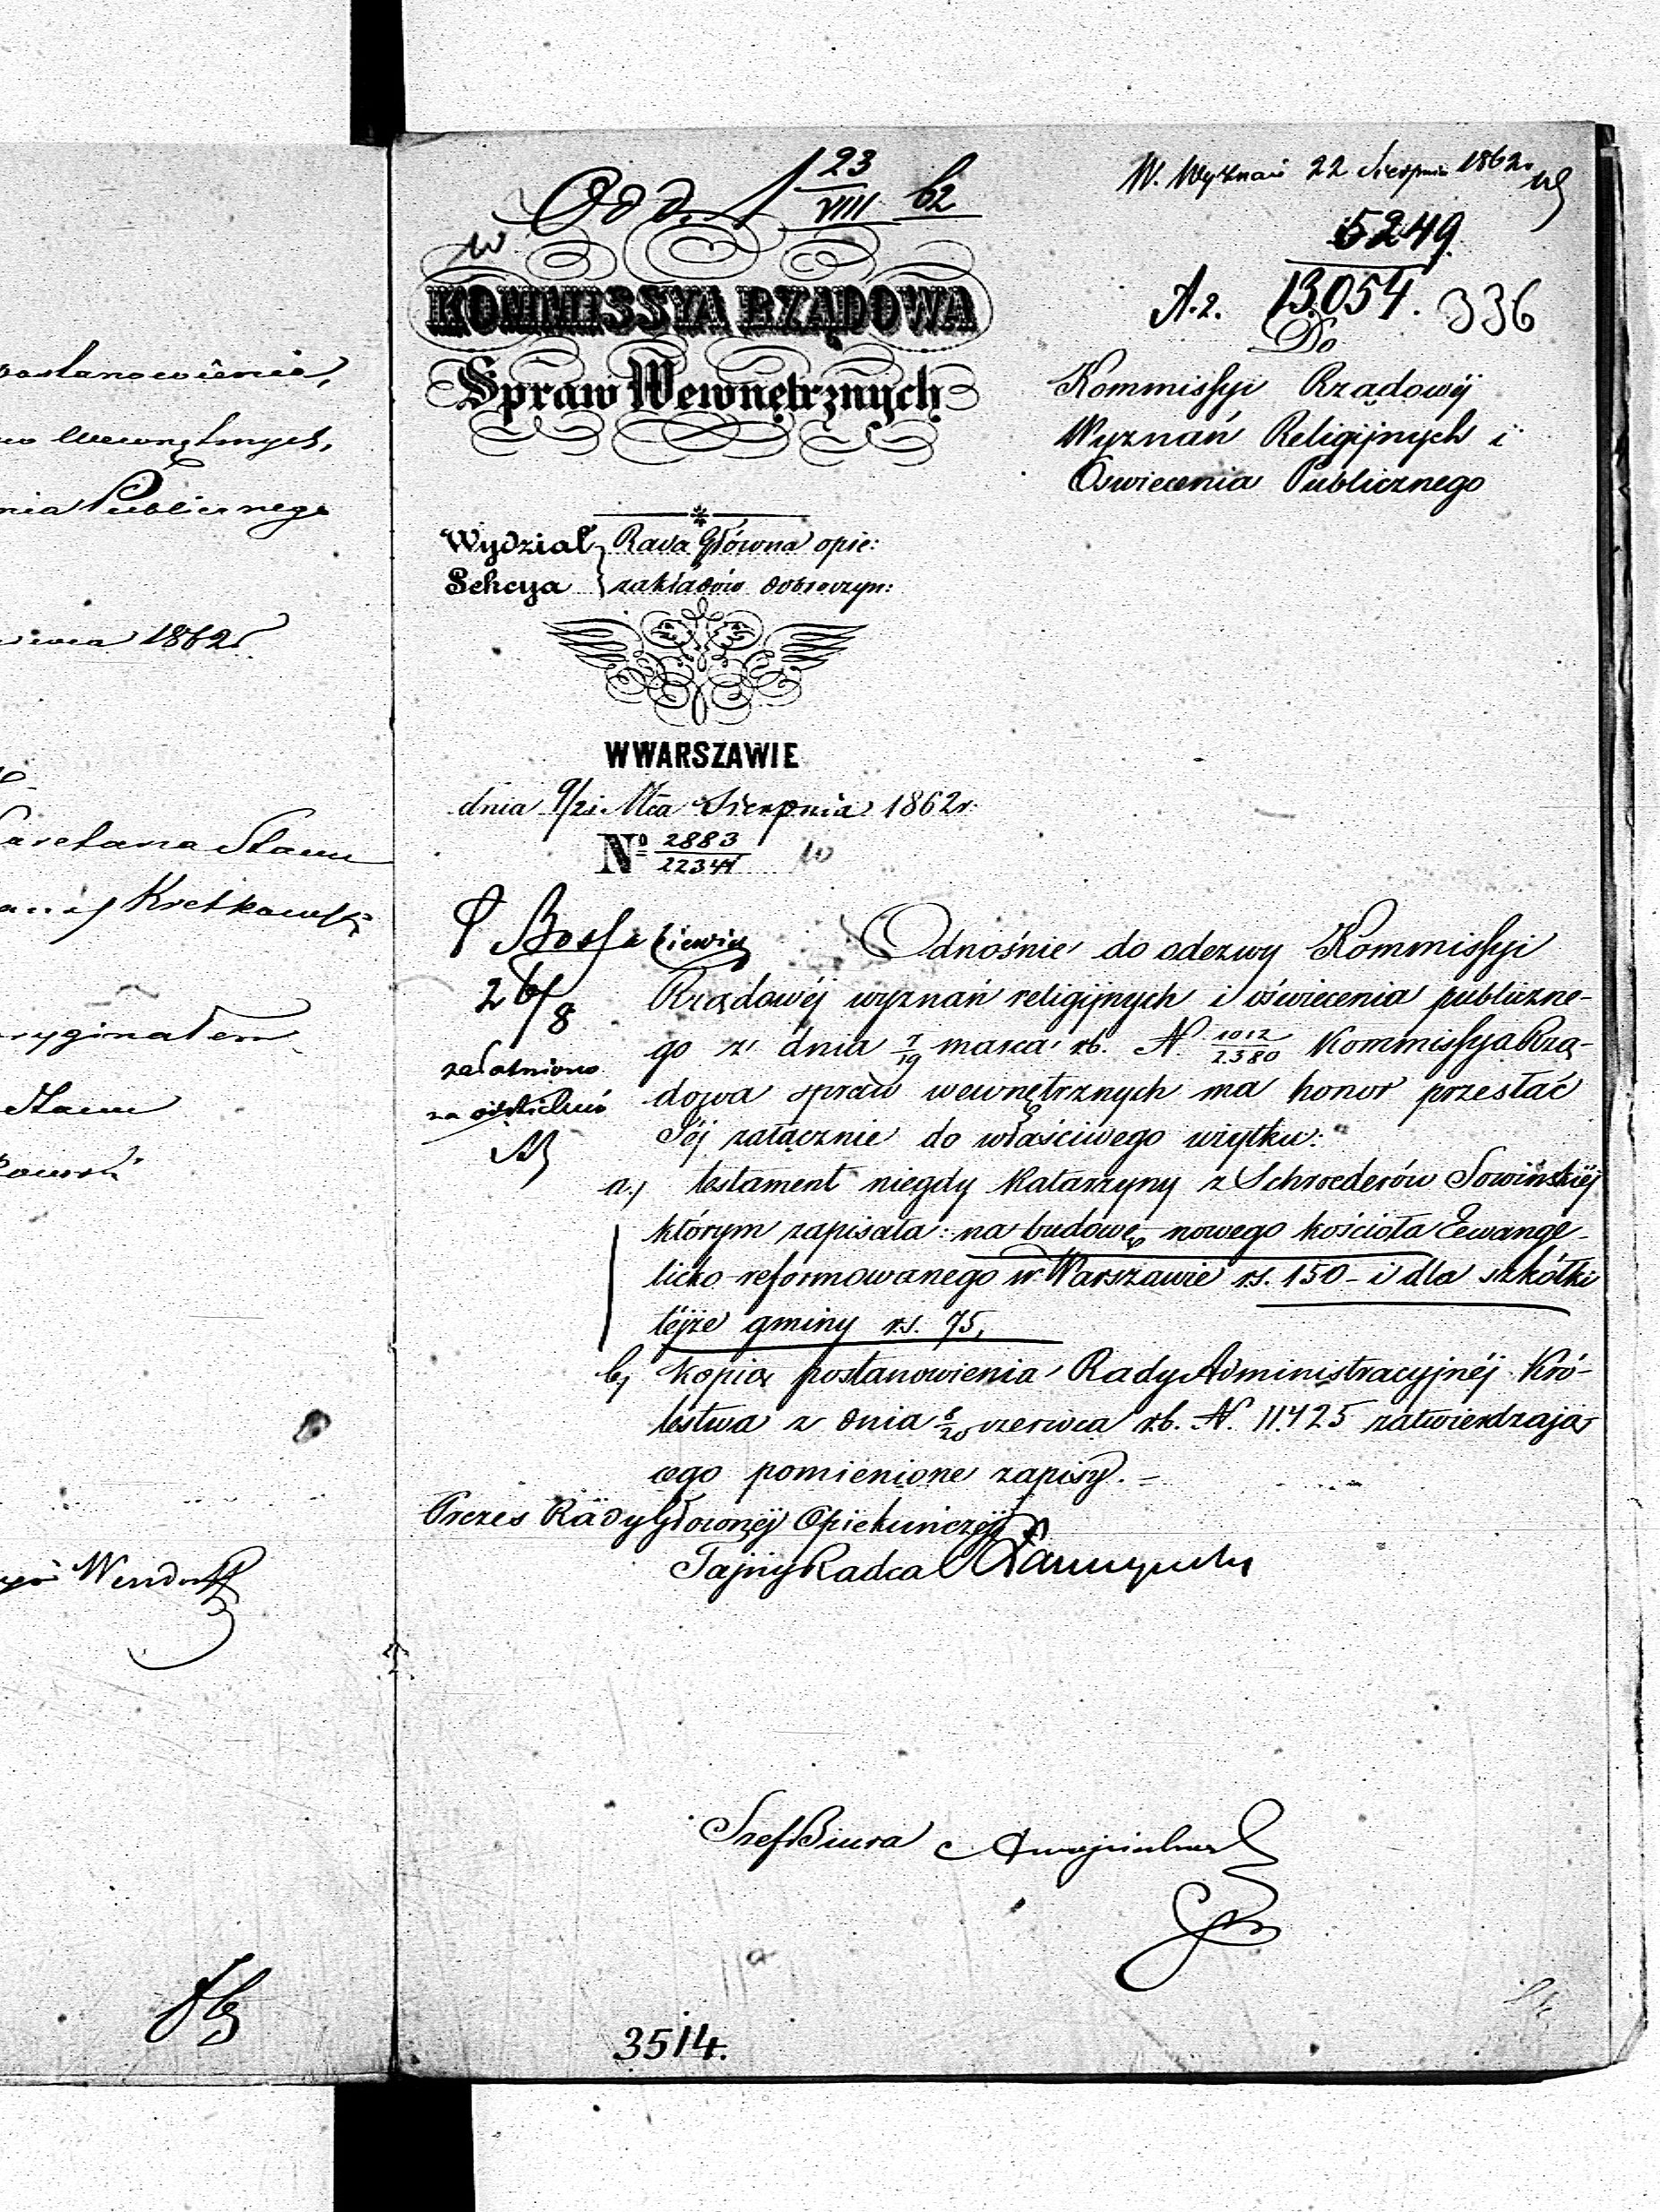 postanowienia,
wewnętrznych,
nia Publicznego
1862 r.
Stanu
Kretkowski
oryginałem
Stanu
Odd. 1 23/VIII 62
W. Wyznań 22 Sierpnia 1862 r.
5249
A.2. 13.054. 336
KOMMISSYA RZĄDOWA
Spraw Wewnętrznych
Do
Kommissyi Rządowéj
Wyznań Religijnych i
Oświecenia Publicznego
Wydział Rada Główna opie:
Sekcya zakładów dobroczyn:
W WARSZAWIE
dnia 9/21 Mca Sierpnia 1862 r.
Nº 2883/22344
26/8
załatwiono
Odnośnie do odezwy Kommissyi
Rządowéj wyznań religijnych i oświecenia publiczne-
go z dnia 7/19 marca rb. N. 1012/2380 Kommissya Rzą-
dowa spraw wewnętrznych ma honor przesłać
Jéj załącznie do właściwego użytku:
a., testament niegdy Katarzyny z Schroederów Sowińskiéj
którym zapisała: na budowę nowego kościoła Ewange-
licko-reformowanego w Warszawie rs. 150 - i dla szkółki
téjże gminy rs. 75,
b, kopią postanowienia Rady Administracyjnéj Kró-
lestwa z dnia 8/20 czerwca rb. N. 11.425 zatwierdzają
cego pomienione zapisy. =
Prezes Rady Głównéj Opiekuńczéj
Tajny Radca
Szef Biura
3514.